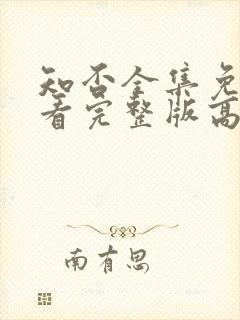 知否全集免
看完整版高
南有思